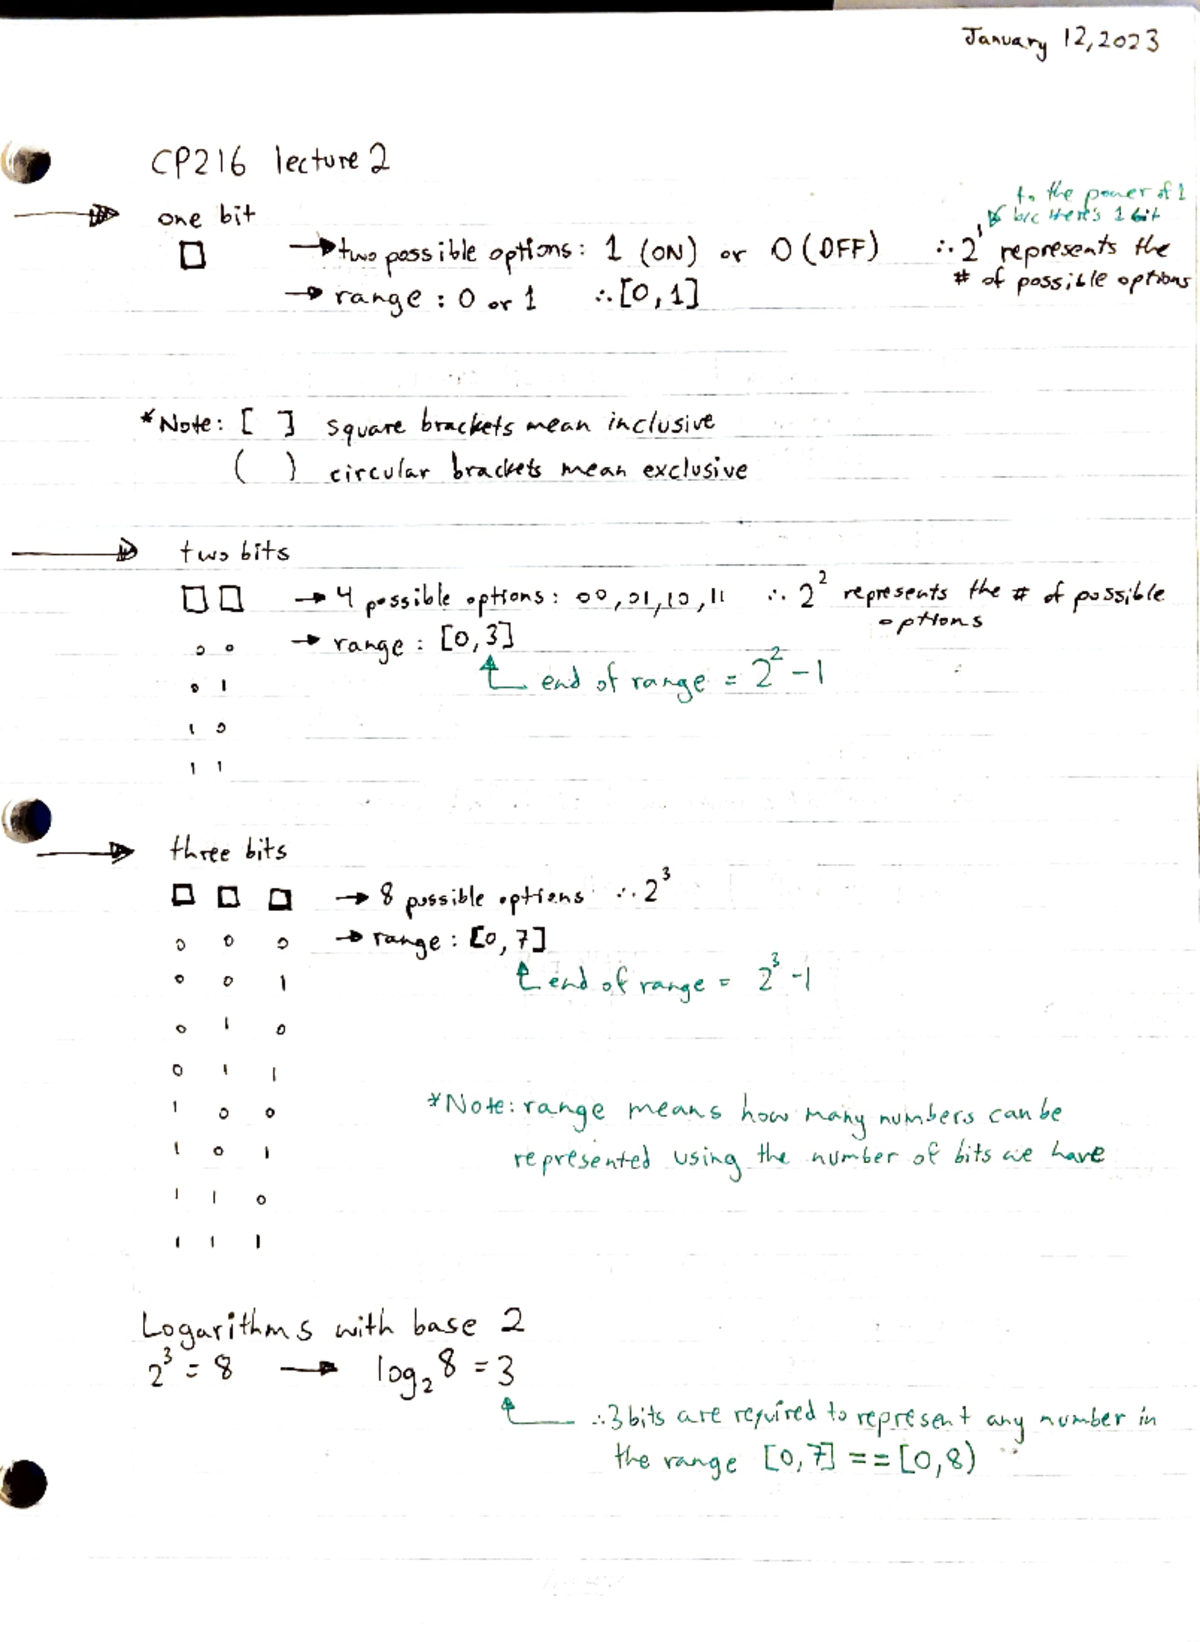 January 12, 2023
CP216 lecture 2
one bit
to the power of 1
b/c there's 1 bit
→ two possible options: 1 (ON) or 0 (OFF) ∴ 2¹ represents the
# of possible options
→ range: 0 or 1 ∴ [0, 1]
*Note: [ ] square brackets mean inclusive
( ) circular brackets mean exclusive
two bits
→ 4 possible options: 00, 01, 10, 11 ∴ 2² represents the # of possible
options
0 0 → range: [0, 3]
end of range = 2² - 1
0 1
1 0
1 1
three bits
→ 8 possible options ∴ 2³
0 0 0 → range: [0, 7]
0 0 1 end of range = 2³ - 1
0 1 0
0 1 1
1 0 0 *Note: range means how many numbers can be
1 0 1 represented using the number of bits we have
1 1 0
1 1 1
Logarithms with base 2
2³ = 8 → log₂ 8 = 3
∴ 3 bits are required to represent any number in
the range [0, 7] == [0, 8)